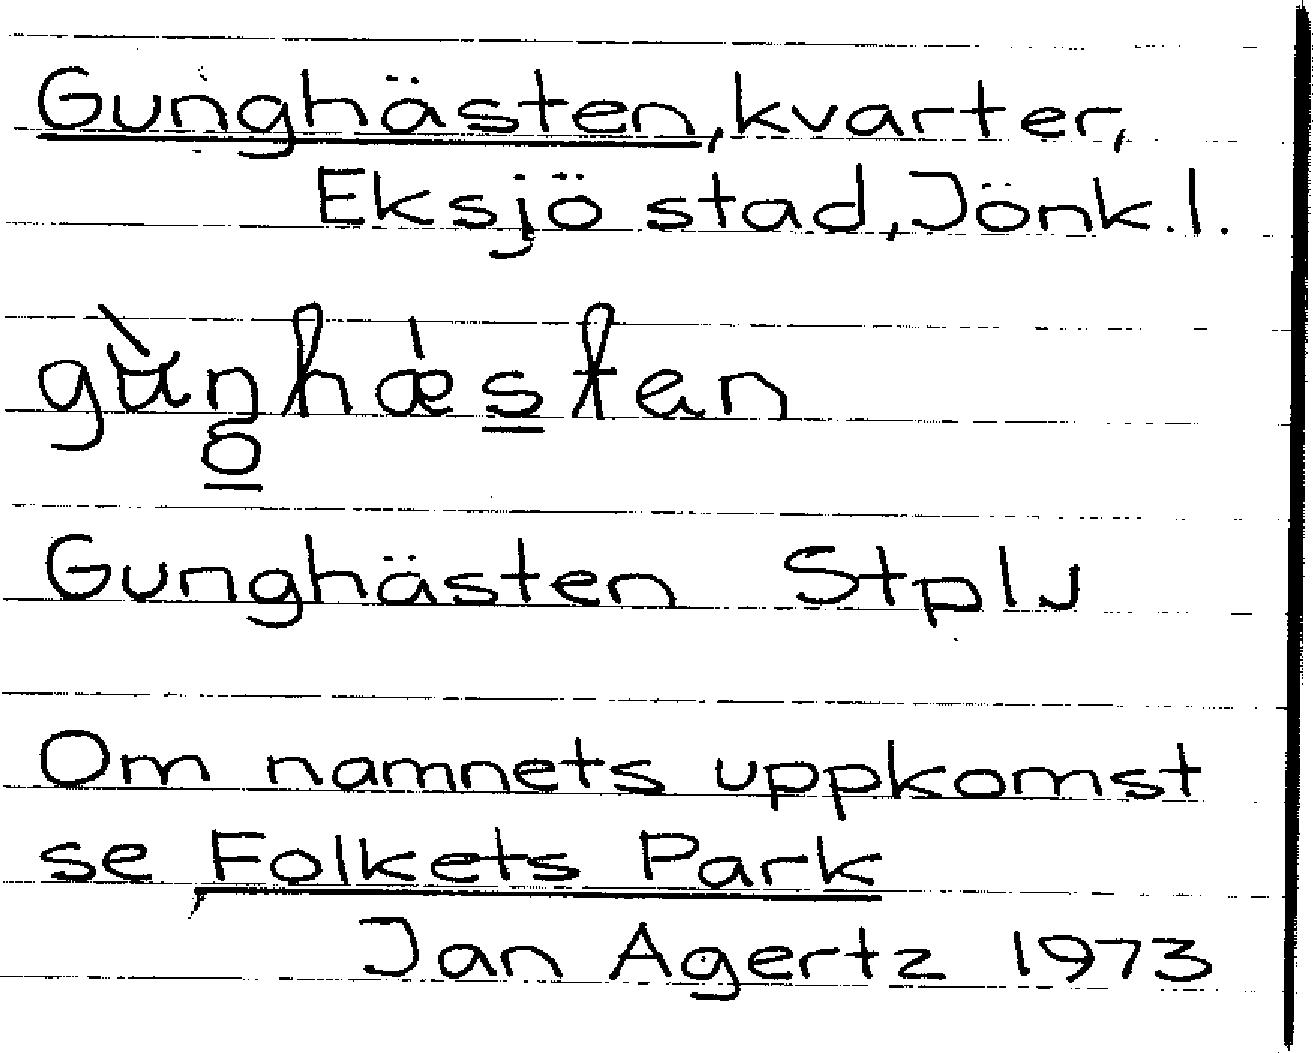 Gunghästen, kvarter,
Eksjö stad, Jönk. l.
Gunghästen StplJ
Om namnets uppkomst
se Folkets Park
Jan Agertz 1973